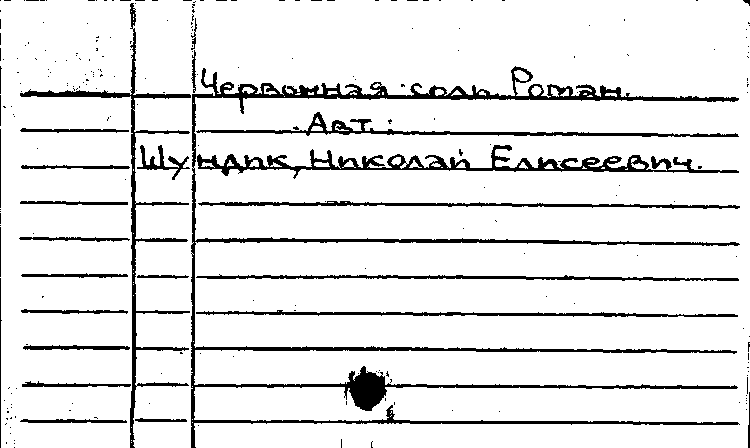 Червонная соль. Роман.
Авт.:
Шундик, Николай Елисеевич.